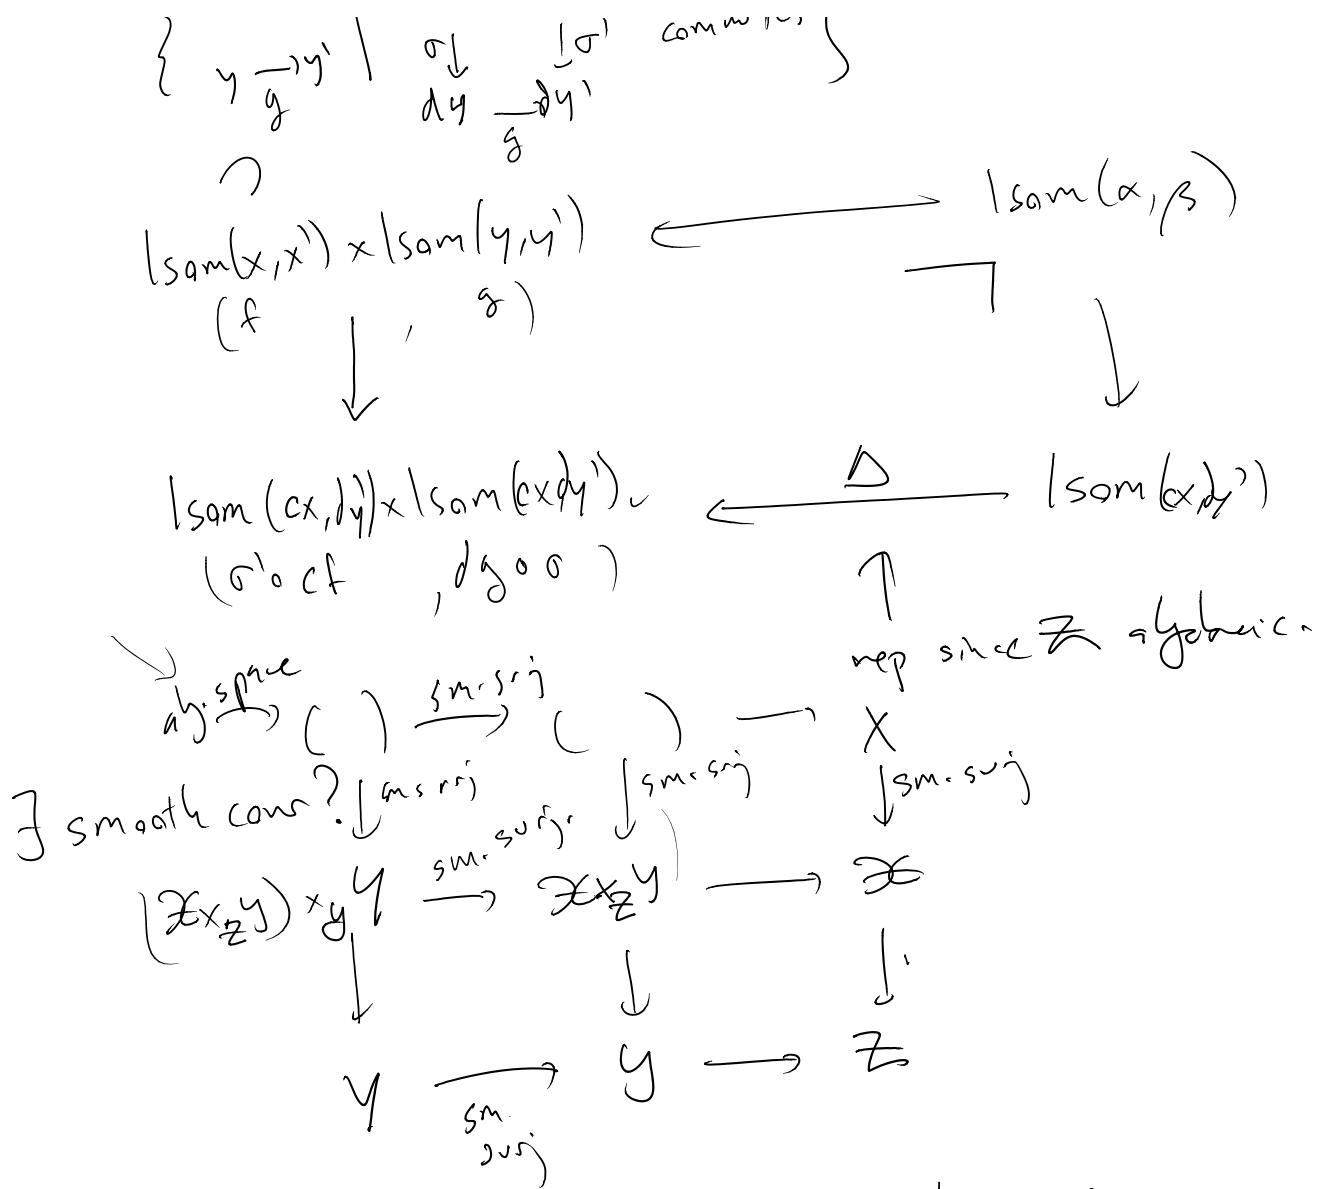 { y →g y' | σ↓ ↓σ'
dy →g dy' }
Isom(x,x') × Isom(y,y') ← Isom(α,β)
(f , g)
Isom(cx,dy') × Isom(cx,dy'). ←Δ Isom(cx,dy')
(σ'∘cf , dg∘σ)
rep since Z algebraic.
alg. space → ( ) sm. surj → ( ) → X
∃ smooth cover? ↓ sm surj ↓ sm. surj ↓ sm. surj
(X ×_Z Y) ×_Y Y sm. surj. → X ×_Z Y → X
Y → Y → Z
sm.
surj